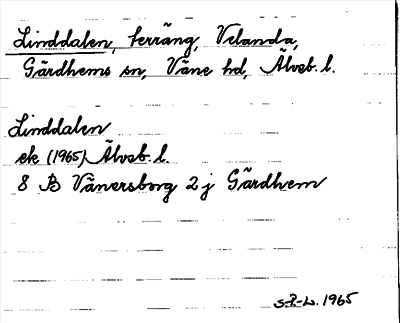 Linddalen, terräng, Velanda,
Gärdhems sn, Väne hd, Älvsb. l.
Linddalen
ek (1965) Älvsb. l.
8 B Vänersborg 2 j Gärdhem
S.R-L. 1965